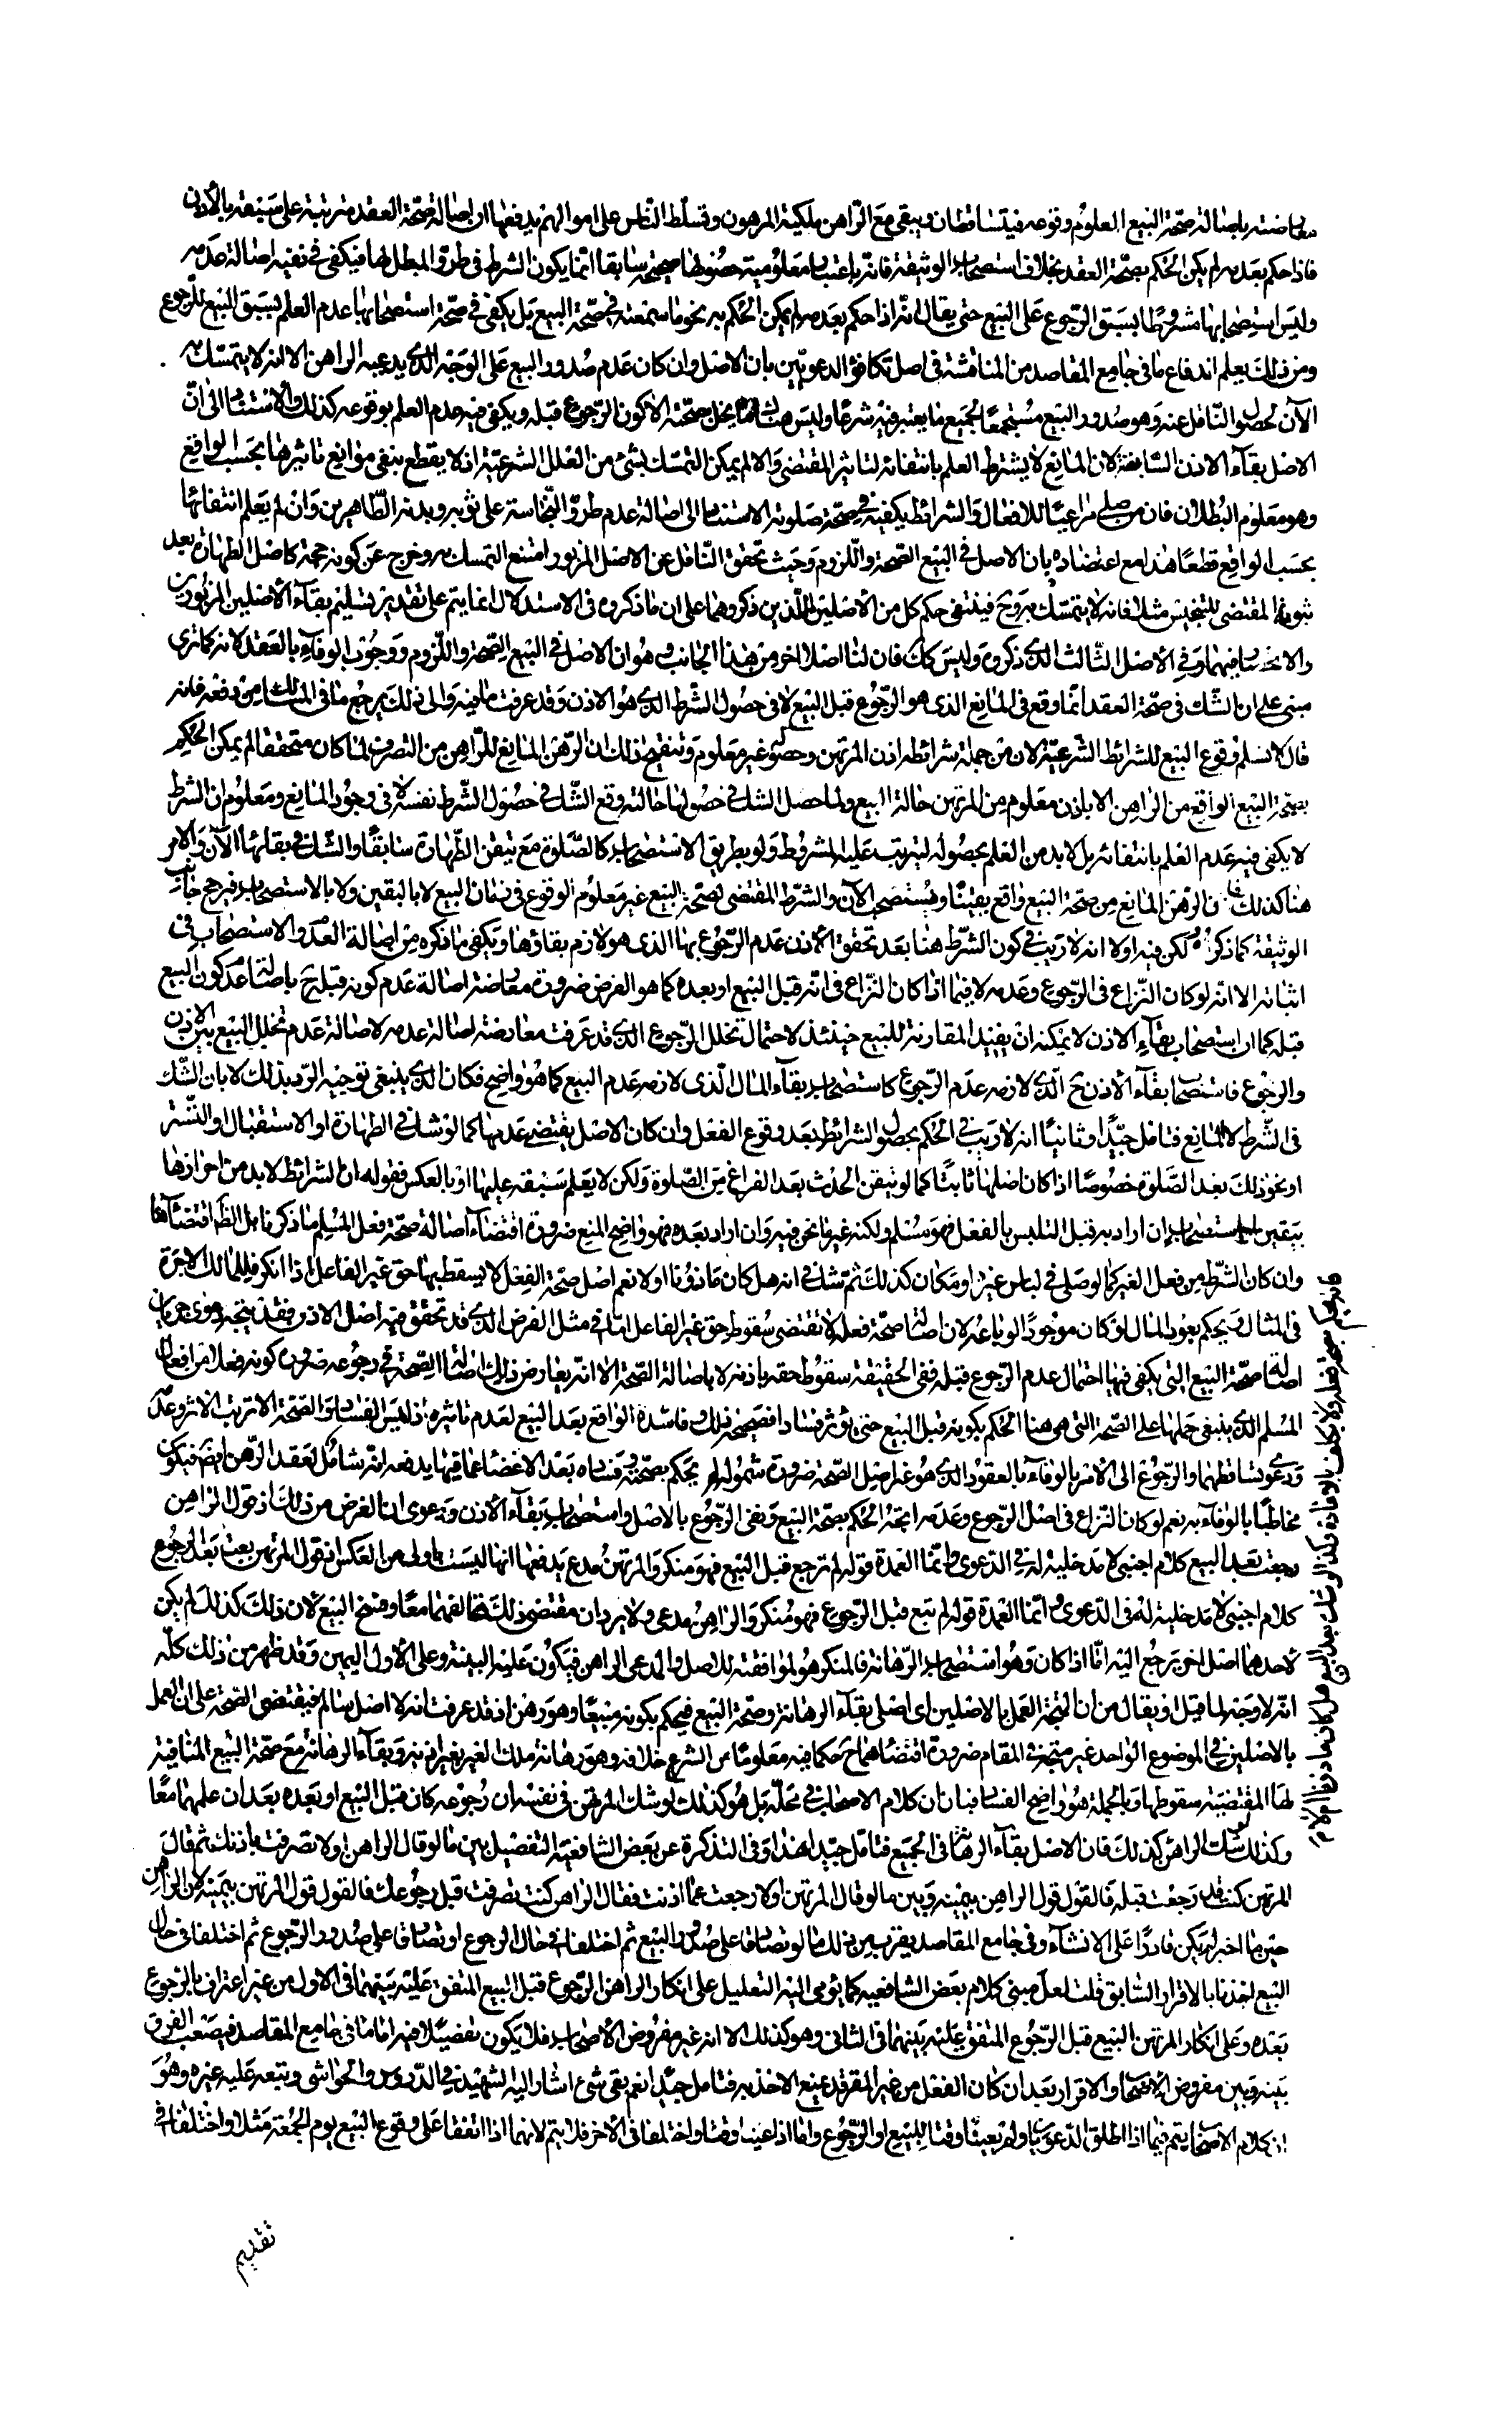 معارضته باصالة صحة البيع المعلوم وقوعه فيتساقطان ويبقى مع الراهن ملكية المرهون وتسلط الناس على اموالهم يدفعها ان اصالة صحة العقد مترتبة على سبقه بالاذن
فاذا حكم بعدمه لم يكن الحكم بصحة العقد بخلاف استصحاب الوثيقة فانه باعتبار معلومية حصولها صحيحة سابقا انما يكون الشرط فى طرو المبطل لها فيكفى فى نفيه اصالة عدمه
وليس استصحابها مشروطا بسبق الرجوع على البيع حتى يقال انه اذا حكم بعدمه لم يمكن الحكم به نحو ما سمعته فى صحة البيع بل يكفى فى صحة استصحابها عدم العلم بسبق البيع للرجوع
ومن ذلك يعلم اندفاع ما فى جامع المقاصد من المناقشة فى اصل تكافؤ الدعويين بان الاصل وان كان عدم صدور البيع على الوجه الذى يدعيه الراهن الا انه لا يتمسك به
الآن لحصول الناقل عنه وهو صدور البيع مستجمعا لجميع ما يعتبر فيه شرعا وليس هنا ما يخل بصحته الا كون الرجوع قبله ويكفى فيه عدم العلم بوقوعه كذلك والاستناد الى ان
الاصل بقاء الاذن السابقة لان المانع لا يشترط العلم بانتفائه لتاثير المقتضى والا لم يمكن التمسك بشئ من العلل الشرعية اذ لا يقطع بنفى موانع تاثيرها بحسب الواقع
وهو معلوم البطلان فان من صلى مراعيا للافعال والشرائط يكفيه فى صحة صلوته الاستناد الى اصالة عدم طرو النجاسة على ثوبه وبدنه الطاهرين وان لم يعلم انتفائها
بحسب الواقع قطعا هذا مع اعتضاده بان الاصل فى البيع الصحة واللزوم وحيث تحقق الناقل عن الاصل المزبور امتنع التمسك به وخرج عن كونه حجة كاصل الطهارة بعد
ثبوت المقتضى للتنجيس مثلا فانه لا يتمسك به وح فينتفى حكم كل من الاصلين اللذين ذكروهما على ان ما ذكروه فى الاستدلال انما يتم على تقدير تسليم بقاء الاصلين المزبورين
والانحصار فيهما وفى الاصل الثالث الذى ذكروه وليس كك فان لنا اصلا اخر من هذا الجانب وهو ان الاصل فى البيع الصحة واللزوم ووجوب الوفاء بالعقد لانه كما ترى
مبنى على ان الشك فى صحة العقد انما وقع فى المانع الذى هو الرجوع قبل البيع لا فى حصول الشرط الذى هو الاذن وقد عرفت ما فيه والى ذلك يرجع ما فى المسالك من دفعه فانه
قال لا نسلم وقوع البيع للشرائط الشرعية لان من جملة شرائطه اذن المرتهن وحصوله غير معلوم وتنقيح ذلك ان الرهن المانع للراهن من التصرف لما كان متحققا لم يمكن الحكم
بصحة البيع الواقع من الراهن الا باذن معلوم من المرتهن حالة البيع ولما حصل الشك فى حصولها حالته وقع الشك فى حصول الشرط نفسه لا فى وجود المانع ومعلوم ان الشرط
لا يكفى فيه عدم العلم بانتفائه بل لا بد من العلم بحصوله ليترتب عليه المشروط ولو بطريق الاستصحاب كالصلوة مع تيقن الطهارة سابقا والشك فى بقائها الآن والامر
هنا كذلك فان الرهن المانع من صحة البيع واقع يقينا ومستصحب الآن والشرط المقتضى لصحة البيع غير معلوم الوقوع فى زمان البيع لا باليقين ولا بالاستصحاب فيرجح جانب
الوثيقة كما ذكروه لكن فيه اولا انه لا ريب فى كون الشرط هنا بعد تحقق الاذن عدم الرجوع بها الذى هو لازم بقاؤها ويكفى ما ذكره من اصالة العدم والاستصحاب فى
اثباته الا انه لو كان النزاع فى الرجوع وعدمه لا فيما اذا كان النزاع فى انه قبل البيع او بعده كما هو الفرض ضرورة معارضة اصالة عدم كونه قبله ح باصالة عدم كون البيع
قبله كما ان استصحاب بقاء الاذن لا يمكنه ان يفيد المقارنة للبيع حينئذ لاحتمال تخلل الرجوع الذى قد عرفت معارضة اصالة عدمه لاصالة عدم تخلل البيع بين الاذن
والرجوع فاستصحاب بقاء الاذن ح الذى لازمه عدم الرجوع كاستصحاب بقاء المال الذى لازمه عدم البيع كما هو واضح فكان الذى ينبغى توجيه الرد بذلك لا بان الشك
فى الشرط لا المانع فتامل جيدا وثانيا انه لا ريب فى الحكم بحصول الشرائط بعد وقوع الفعل وان كان الاصل يقتضى عدمها كما لو شك فى الطهارة او الاستقبال او التستر
او نحو ذلك بعد الصلوة خصوصا اذا كان اصلها ثابتا كما لو تيقن الحدث بعد الفراغ من الصلوة ولكن لا يعلم سبقه عليها او بالعكس فقوله ان الشرائط لا بد من احرازها
بيقين او استصحاب ان اراد به قبل التلبس بالفعل فهو مسلم ولكنه غير ما نحن فيه وان اراد بعده فهو واضح المنع ضرورة اقتضاء اصالة صحة فعل المسلم ما ذكرنا بل الظ اقتضائها
وان كان الشرط من فعل الغير كما لو صلى فى لباس غيره او مكان كذلك ثم شك فى انه هل كان ماذونا او لا نعم اصل صحة الفعل لا يسقط بها حق غير الفاعل اذا انكر فللمالك الاجرة
فى المثال ويحكم بعود المال لو كان موجودا لو باعه لان اصالة صحة فعله لا تقتضى سقوط حق غير الفاعل اما فى مثل الفرض الذى قد تحقق فيه اصل الاذن فقد يتجه دعوى جريان
اصالة صحة البيع التى يكفى فيها احتمال عدم الرجوع قبله ففى الحقيقة سقوط حقه باذنه لا باصالة الصحة الا انه يعارض ذلك اصالة الصحة فى رجوعه ضرورة كونه فعلا من افعال
المسلم الذى ينبغى حملها على الصحة التى هى هنا الحكم بكونه قبل البيع حتى يؤثر فسادا فصحيحه ذلك وفاسده الواقع بعد البيع لعدم تاثيره اذ ليس الفساد والصحة الا ترتب الاثر وعدمه
ودعوى تساقطهما والرجوع الى الامر بالوفاء بالعقود الذى هو غير اصل الصحة ضرورة شموله لم يحكم بصحته وفساده بعد الاغضاء عما فيها يدفعه انه شامل لعقد الرهن ايضا فيكون
مخاطبا بالوفاء به نعم لو كان النزاع فى اصل الرجوع وعدمه اتجه الحكم بصحة البيع ونفى الرجوع بالاصل واستصحاب بقاء الاذن ودعوى ان الفرض من ذلك اذ قول الراهن
رجعت بعد البيع كلام اجنبى لا مدخلية له فى الدعوى وانما العمدة قوله لم ترجع قبل البيع فهو منكر والمرتهن مدع يدفعها انها ليست باولى من العكس اذ قول المرتهن بعت بعد الرجوع
كلام اجنبى لا مدخلية له فى الدعوى وانما العمدة قوله لم تبع قبل الرجوع فهو منكر والراهن مدعى ولا يرد ان مقتضى ذلك تحالفهما معا وفسخ البيع لان ذلك كذلك لم يكن
لاحدهما اصل اخر يرجع اليه اما اذا كان وهو استصحاب الرهانة فالمنكر هو لموافقته للاصل والمدعى الراهن فيكون عليه البينة وعلى الاول اليمين وقد ظهر من ذلك كله
انه لا وجه لما قيل او يقال من ان المتجه العمل بالاصلين اى اصلى بقاء الرهانة وصحة البيع فيحكم بكونه مبيعا وهو رهن اذ قد عرفت انه لا اصل سالم فيقتضى الصحة على ان العمل
بالاصلين فى الموضوع الواحد غير متجه فى المقام ضرورة اقتضائهما ح حكما فيه معلوما من الشرع خلافه وهو رهانة ملك الغير بغير اذنه وبقاء الرهانة مع صحة البيع المنافية
لها المقتضية سقوطها وبالجملة هو واضح الفساد فبان ان كلام الاصحاب فى محله بل هو كذلك لو شك المرتهن فى نفسه ان رجوعه كان قبل البيع او بعده بعد ان علمهما معا
وكذلك لو شك الراهن كذلك فان الاصل بقاء الرهانة فى الجميع فتامل جيدا هذا وفى التذكرة عن بعض الشافعية التفصيل بين ما لو قال الراهن اولا تصرفت باذنك ثم قال
المرتهن كنت قد رجعت قبله فالقول قول الراهن بيمينه وبين ما لو قال المرتهن اولا رجعت عما اذنت فقال الراهن كنت تصرفت قبل رجوعك فالقول قول المرتهن بيمينه لان الراهن
حين ما اخبر لم يكن قادرا على الانشاء وفى جامع المقاصد يقرب من ذلك ما لو تصادقا على صدور البيع ثم اختلفا فى حال الرجوع او تصادقا على صدور الرجوع ثم اختلفا فى حال
البيع اخذنا بالاقرار السابق قلت لعل مبنى كلام بعض الشافعيه كما يومى اليه التعليل على انكار الراهن الرجوع قبل البيع المتفق عليه بينهما فى الاول من غير اعتراف بالرجوع
بعده وعلى انكار المرتهن البيع قبل الرجوع المتفق عليه بينهما فى الثانى وهو كذلك الا انه غير مفروض الاصحاب فلا يكون تفصيلا فيه اما ما فى جامع المقاصد فيصعب الفرق
بينه وبين مفروض الاصحاب والاقرار بعد ان كان الفعل من غير المقر قد يمنع الاخذ به فتامل جيدا نعم بقى شئ اشار اليه الشهيد فى الدروس والحواشى وتبعه عليه غيره وهو
ان كلام الاصحاب يتم فيما اذا اطلق الدعويان ولم يعينا وقتا للبيع او الرجوع واما اذا عينا وقتا واختلفا فى الاخر فلا يتم لانهما اذا اتفقا على وقوع البيع يوم الجمعة مثلا واختلفا فى
تقديم